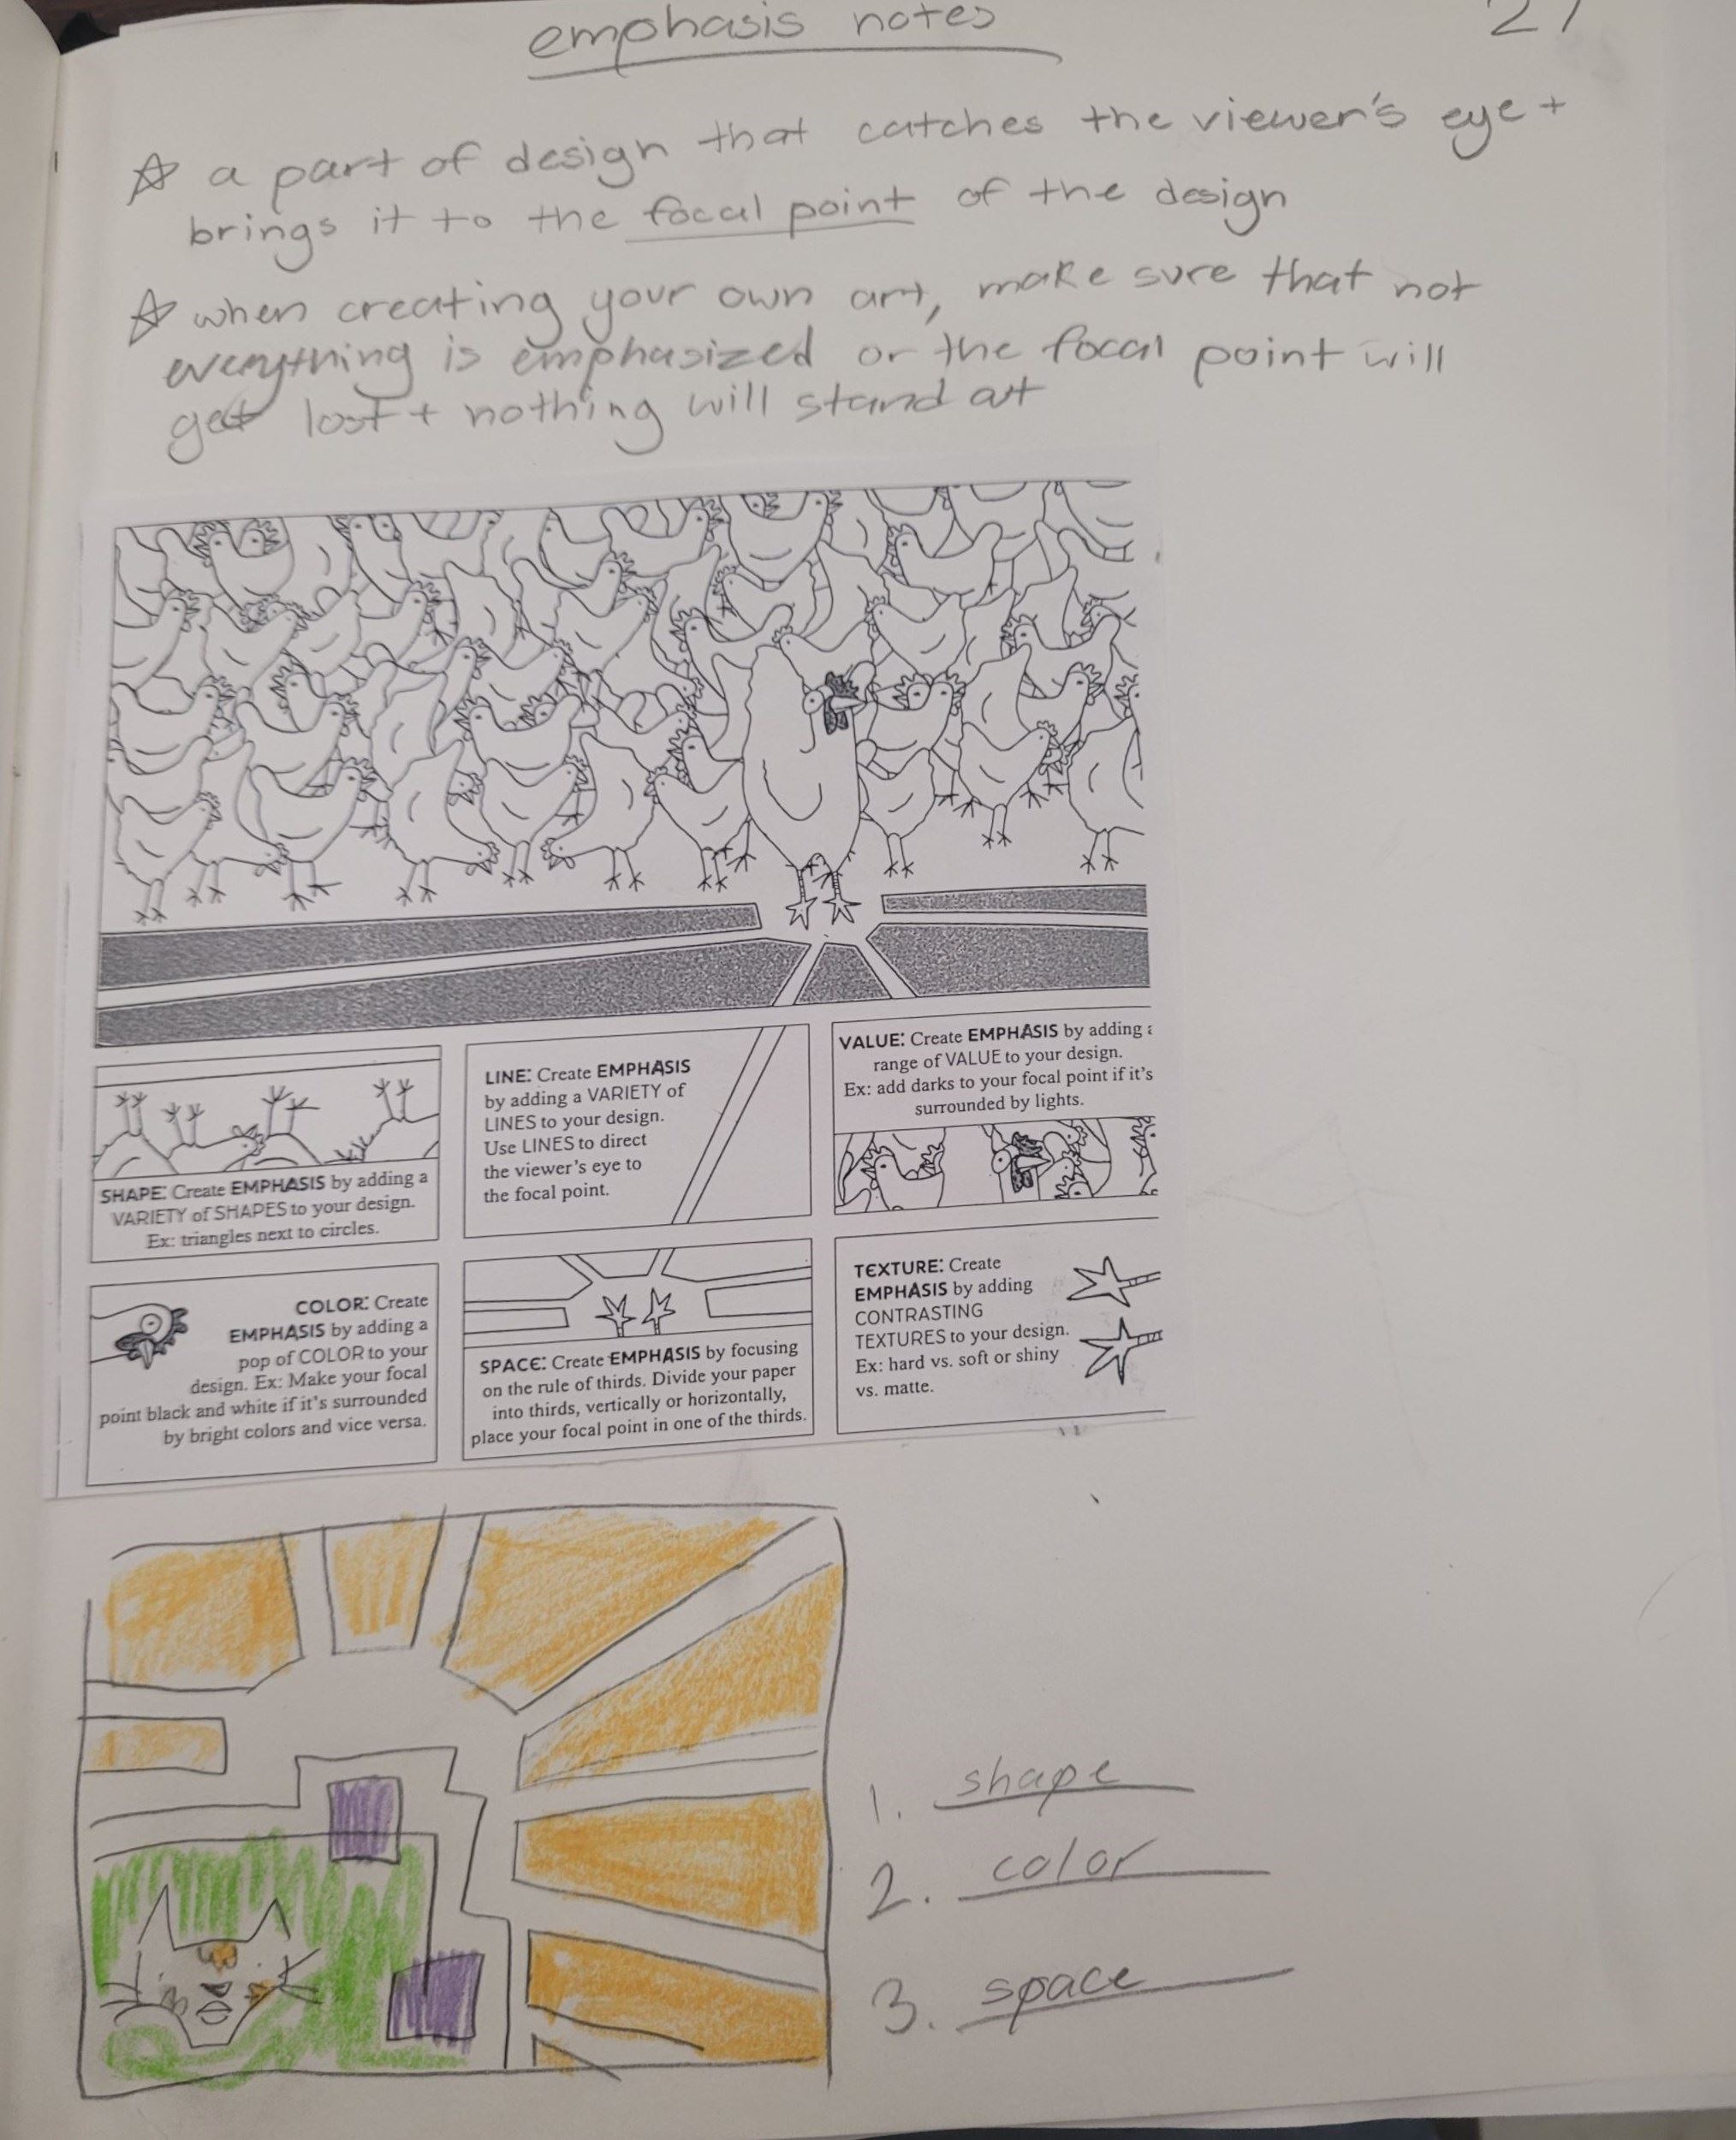 emphasis notes
27
☆ a part of design that catches the viewer's eye +
brings it to the focal point of the design
☆ when creating your own art, make sure that not
everything is emphasized or the focal point will
get lost + nothing will stand out
SHAPE: Create EMPHASIS by adding a
VARIETY of SHAPES to your design.
Ex: triangles next to circles.
LINE: Create EMPHASIS
by adding a VARIETY of
LINES to your design.
Use LINES to direct
the viewer's eye to
the focal point.
VALUE: Create EMPHASIS by adding a
range of VALUE to your design.
Ex: add darks to your focal point if it's
surrounded by lights.
COLOR: Create
EMPHASIS by adding a
pop of COLOR to your
design. Ex: Make your focal
point black and white if it's surrounded
by bright colors and vice versa.
SPACE: Create EMPHASIS by focusing
on the rule of thirds. Divide your paper
into thirds, vertically or horizontally,
place your focal point in one of the thirds.
TEXTURE: Create
EMPHASIS by adding
CONTRASTING
TEXTURES to your design.
Ex: hard vs. soft or shiny
vs. matte.
1. shape
2. color
3. space